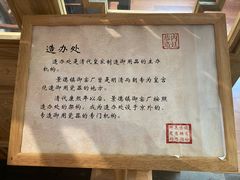 造办处
造办处是清代皇家制造御用品的主办
机构。
景德镇御窑厂皆是明清两朝专为皇宫
烧造御用瓷器的地方。
清代康熙年以后，景德镇御窑厂按照
造办处的架构，成为造办处设于京外的，
专造御用瓷器的专门机构。